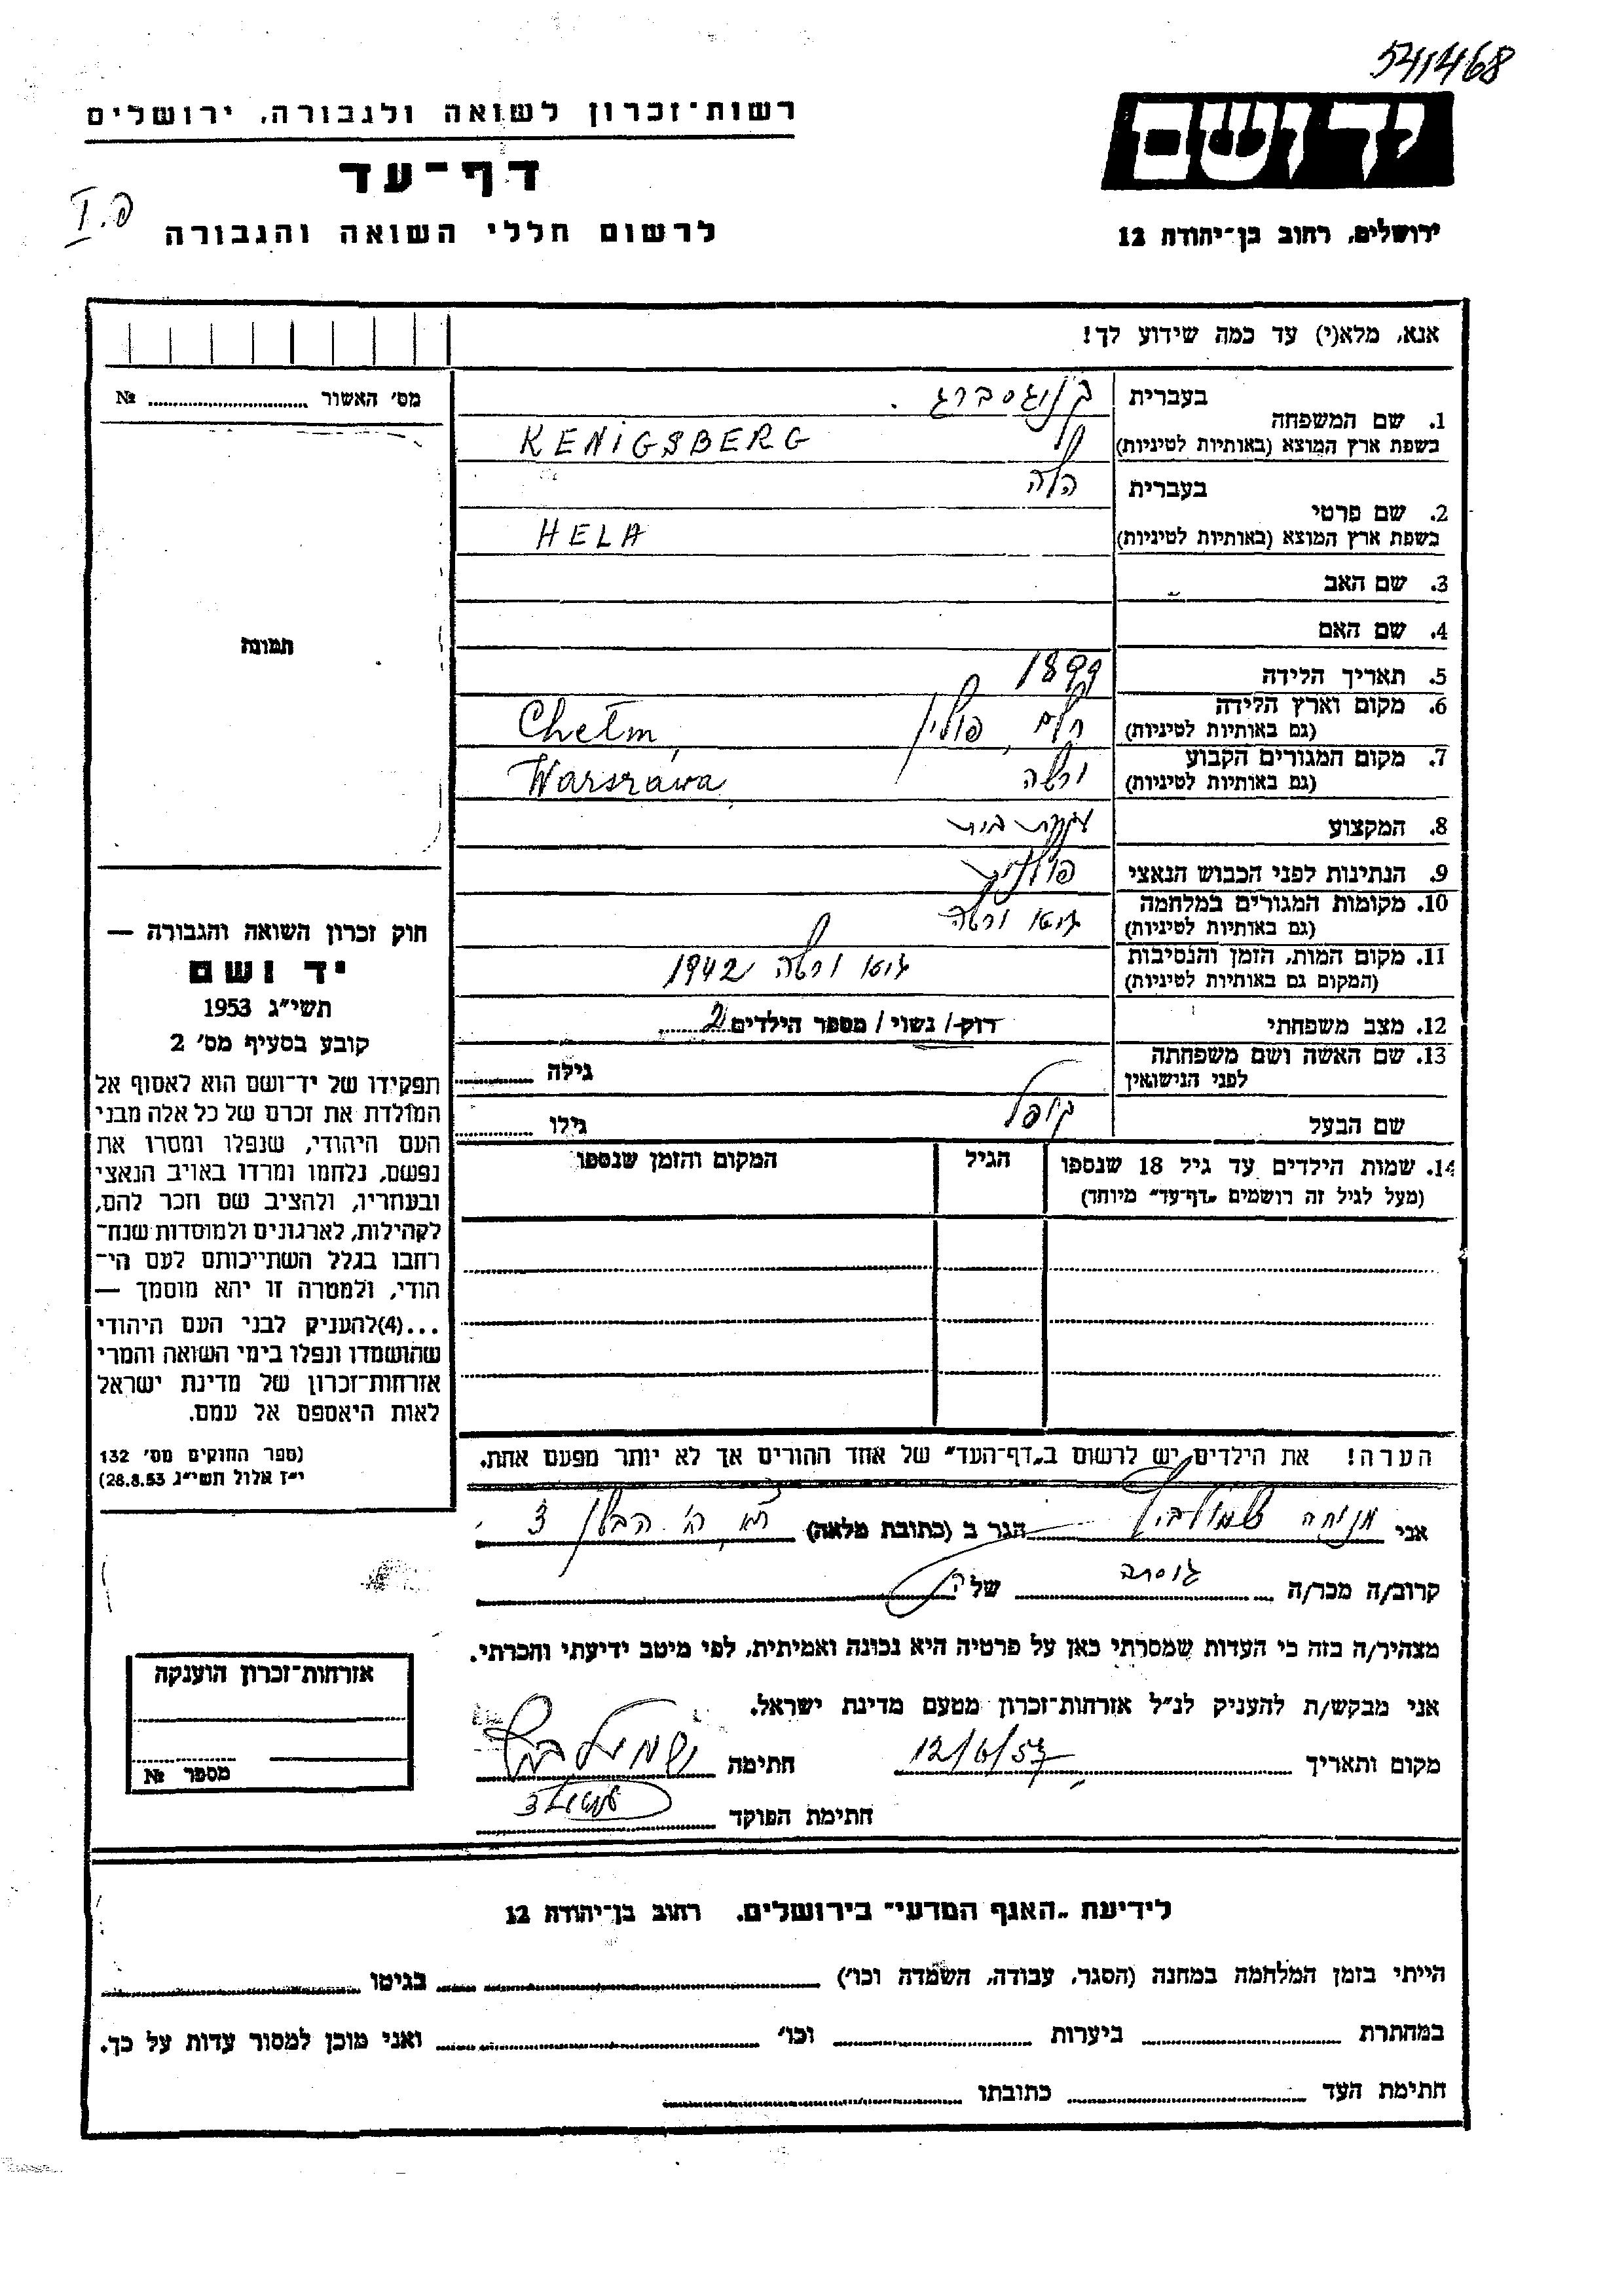 541468
רשות־זכרון לשואה ולגבורה, ירושלים
יד ושם
דף־עד
לרשום חללי השואה והגבורה
ירושלים, רחוב בן־יהודה 12
אנא, מלא(י) עד כמה שידוע לך!
מס' האשור № ........
1. שם המשפחה
בעברית קניגסברג
בשפת ארץ המוצא (באותיות לטיניות) KENIGSBERG
2. שם פרטי
בעברית הלה
בשפת ארץ המוצא (באותיות לטיניות) HELA
3. שם האב
4. שם האם
5. תאריך הלידה 1899
6. מקום וארץ הלידה
(גם באותיות לטיניות) חלם, פולין Chełm,
7. מקום המגורים הקבוע
(גם באותיות לטיניות) ורשה Warszawa
8. המקצוע עקרת בית
9. הנתינות לפני הכבוש הנאצי פולנית
10. מקומות המגורים במלחמה
(גם באותיות לטיניות) גיטו ורשה
11. מקום המות, הזמן והנסיבות
(המקום גם באותיות לטיניות) גיטו ורשה 1942
12. מצב משפחתי רוק/ נשוי/ מספר הילדים 2
13. שם האשה ושם משפחתה
לפני הנישואין
גילה ........
שם הבעל קופל
גילו ........
14. שמות הילדים עד גיל 18 שנספו
(מעל לגיל זה רושמים „דף־עד" מיוחד)
הגיל
המקום והזמן שנספו
תמונה
חוק זכרון השואה והגבורה —
יד ושם
תשי"ג 1953
קובע בסעיף מס' 2
תפקידו של יד־ושם הוא לאסוף אל
המולדת את זכרם של כל אלה מבני
העם היהודי, שנפלו ומסרו את
נפשם, נלחמו ומרדו באויב הנאצי
ובעוזריו, ולהציב שם וזכר להם,
לקהילות, לארגונים ולמוסדות שנח־
רבו בגלל השתייכותם לעם הי־
הודי, ולמטרה זו יהא מוסמך —
...(4)להעניק לבני העם היהודי
שהושמדו ונפלו בימי השואה והמרי
אזרחות־זכרון של מדינת ישראל
לאות היאספם אל עמם.
(ספר החוקים מס' 132
י"ז אלול תשי"ג 28.8.53)
הערה! את הילדים, יש לרשום ב„דף־העד" של אחד ההורים אך לא יותר מפעם אחת.
אני מנוחה הגר ב (כתובת מלאה) 3
קרוב/ה מכר/ה גיסה של
מצהיר/ה בזה כי העדות שמסרתי כאן על פרטיה היא נכונה ואמיתית, לפי מיטב ידיעתי והכרתי.
אני מבקש/ת להעניק לנ"ל אזרחות־זכרון מטעם מדינת ישראל.
מקום ותאריך 12/6/57 חתימה
חתימת הפוקד
אזרחות־זכרון הוענקה
מספר №
לידיעת „האגף המדעי" בירושלים, רחוב בן־יהודה 12
הייתי בזמן המלחמה במחנה (הסגר, עבודה, השמדה וכו') ........ בגיטו ........
במחתרת ........ ביערות ........ וכו' ........ ואני מוכן למסור עדות על כך.
חתימת העד ........ כתובתו ........